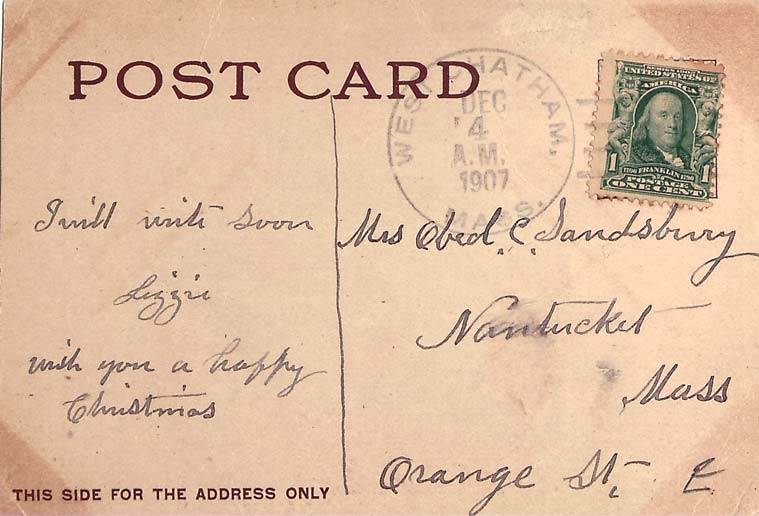 POST CARD
WEST CHATHAM,
DEC
4
A.M.
1907
MASS.
SERIES 1902
UNITED STATES OF
AMERICA
1706 FRANKLIN 1790
1 1
POSTAGE
ONE CENT
I will write soon
Lizzie
wish you a happy
Christmas
Mrs Obed C. Sandsbury
Nantucket
Mass
Orange St. E
THIS SIDE FOR THE ADDRESS ONLY